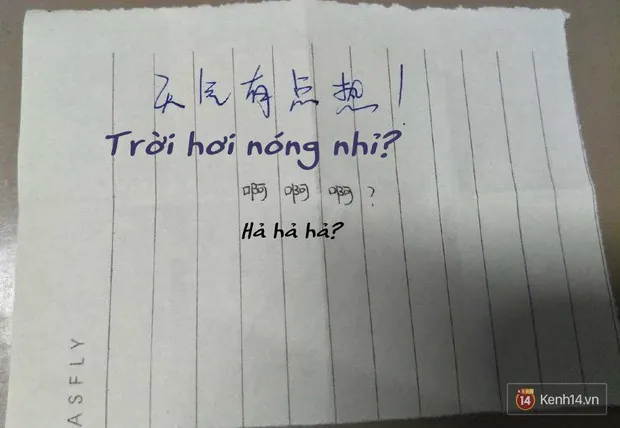 天气有点热！
Trời hơi nóng nhỉ?
啊 啊 啊？
Hả hả hả?
ASFLY
14 Kenh14.vn